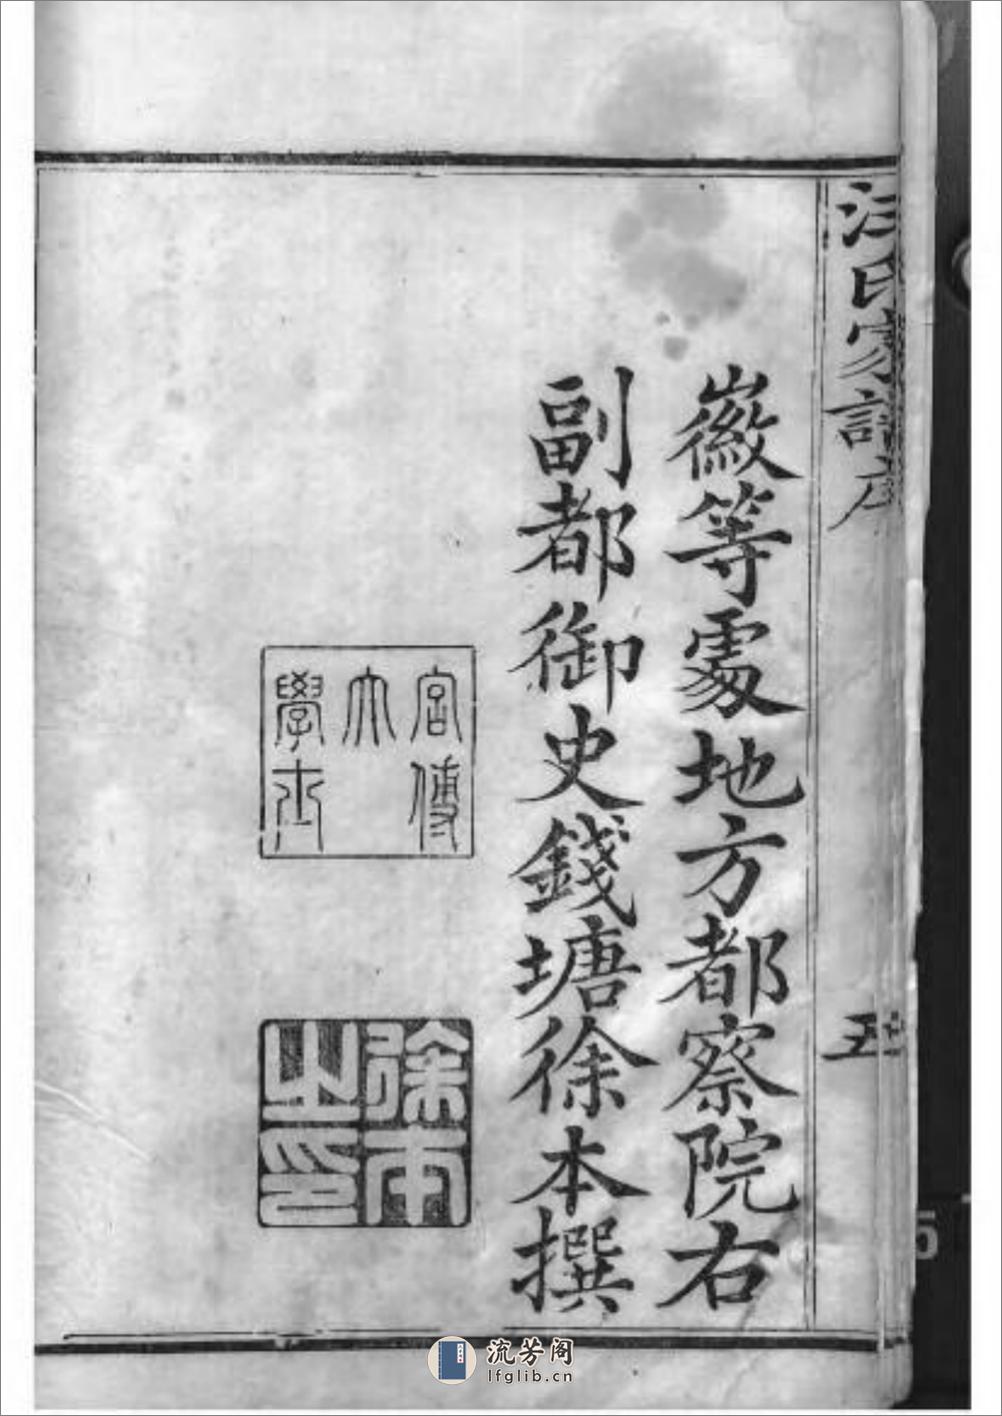 汪氏家譜序
五
徽等處地方都察院右
副都御史錢塘徐本撰
宮傅
大
學士
徐本
之印
流芳阁
lfglib.cn
5